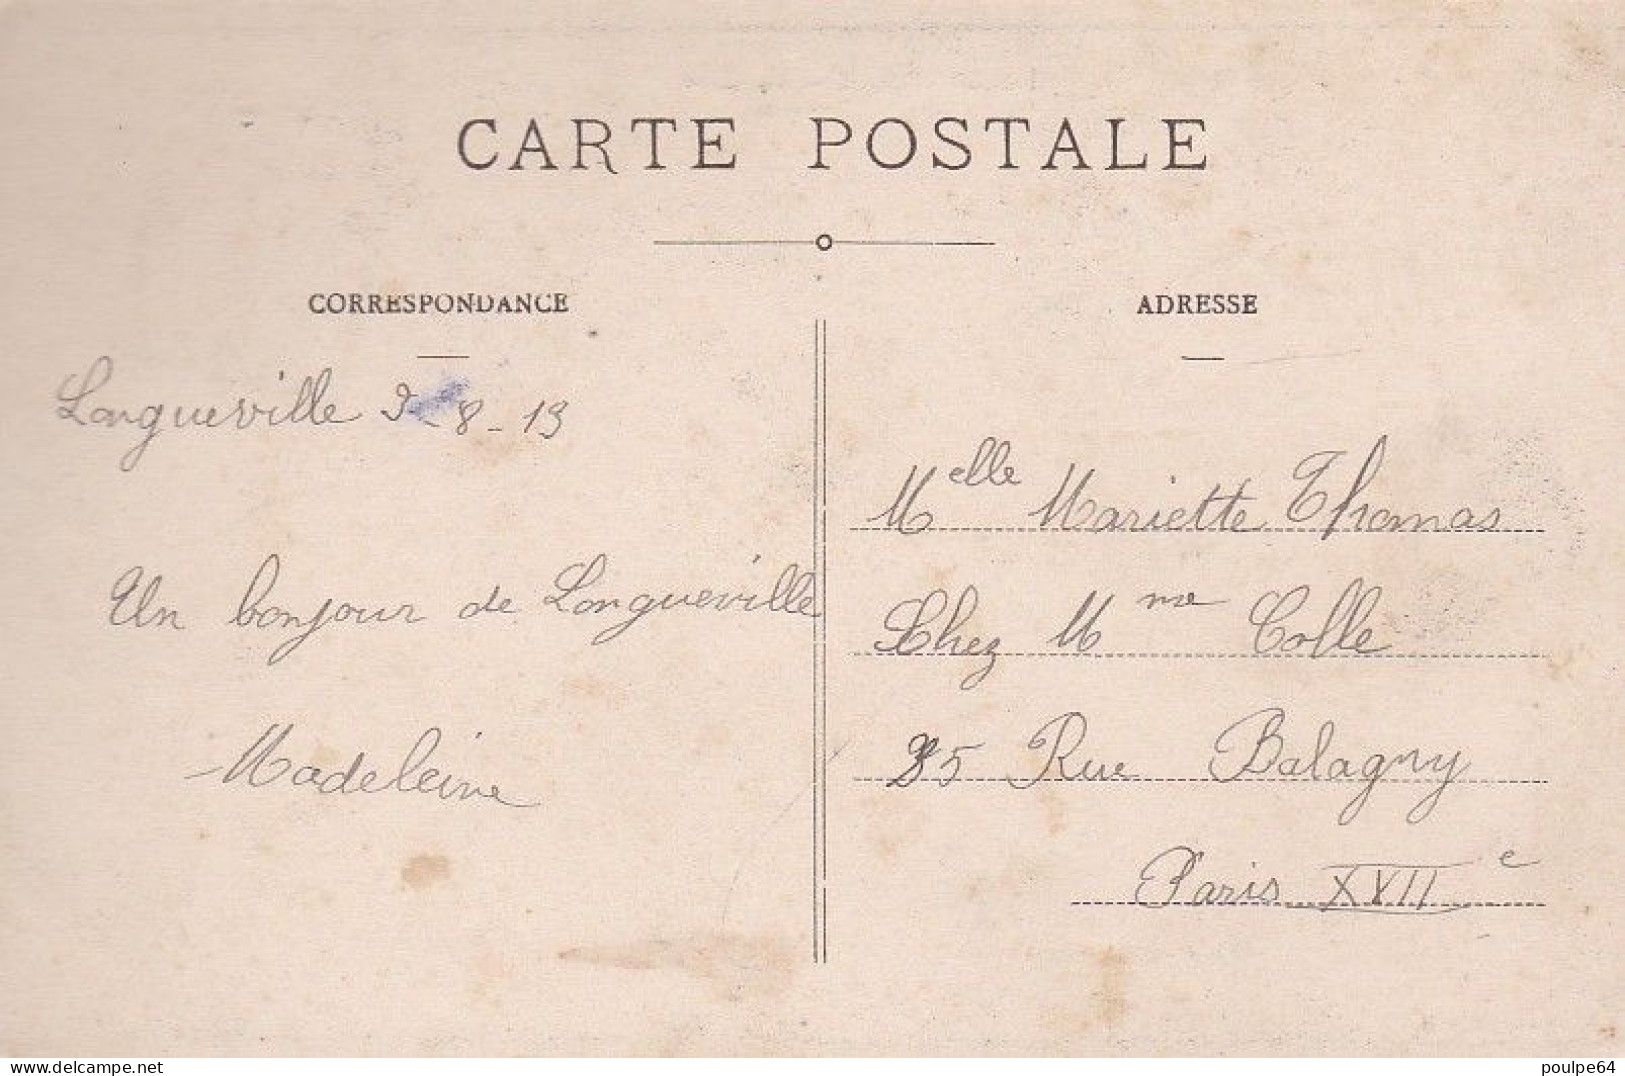 CARTE POSTALE
CORRESPONDANCE
Longueville 3-8-13
Un bonjour de Longueville
Madeleine
ADRESSE
Melle Mariette Thomas
Chez Mme Colle
25 Rue Balagny
Paris XVIIe
www.delcampe.net
poulpe64